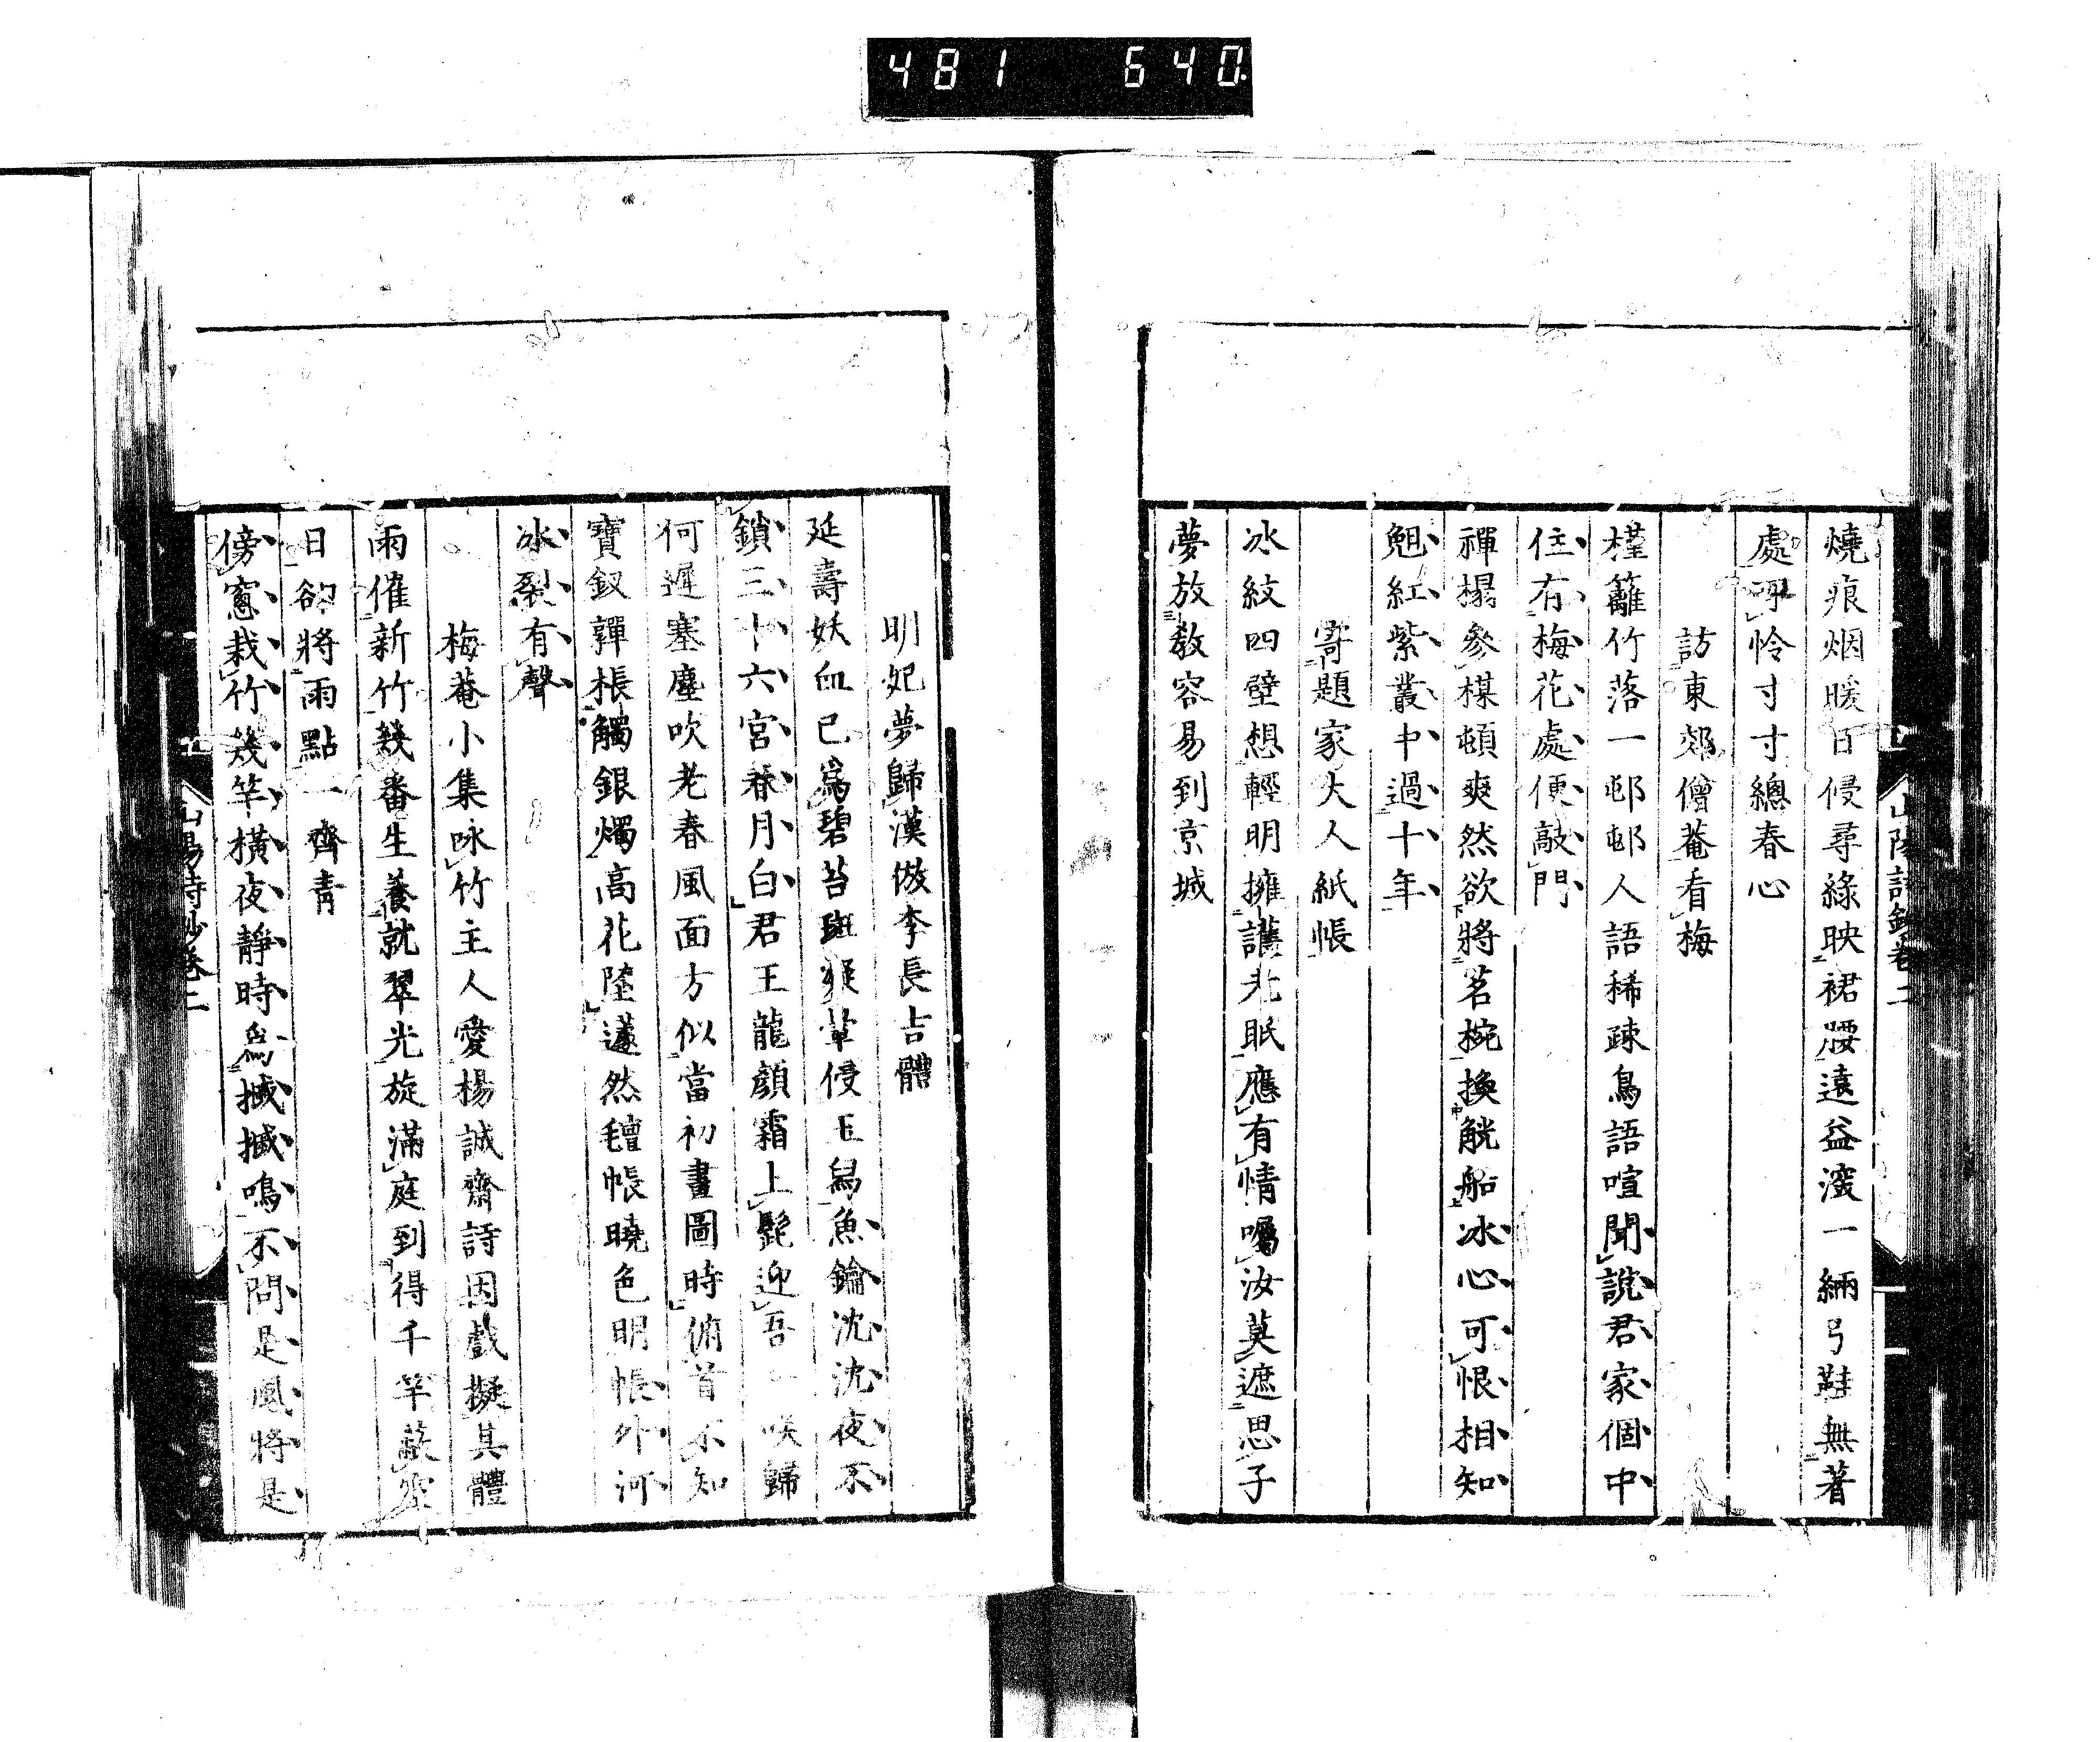 481 640
山陽詩鈔卷二
燒痕烟暖日侵尋綠映裙腰遠益深一緉弓鞋無著
處可怜寸寸總春心
訪東郊僧菴看梅
槿籬竹落一邨邨人語稀疎鳥語喧聞說君家個中
住有梅花處便敲門
禪榻參棋頓爽然欲將茗椀換觥船冰心可恨相知
晚紅紫叢中過十年
寄題家大人紙帳
冰紋四壁想輕明擁護老眠應有情囑汝莫遮思子
夢放教容易到京城
明妃夢歸漢倣李長吉體
延壽妖血已爲碧苔斑凝輦侵玉舄魚鑰沈沈夜不
鎖三十六宮春月白君王龍顏霜上髭迎吾一唉歸
何遲塞塵吹老春風面方似當初畫圖時俯首不知
寶釵嚲棖觸銀燭高花墮蘧然氊帳曉色明帳外河
冰裂有聲
梅菴小集咏竹主人愛楊誠齋詩因戲擬其體
雨催新竹幾番生養就翠光旋滿庭到得千竿蔽空
日欲將雨點一齊青
傍窓栽竹幾竿橫夜靜時爲摵摵鳴不問是風將是
山陽詩鈔卷二